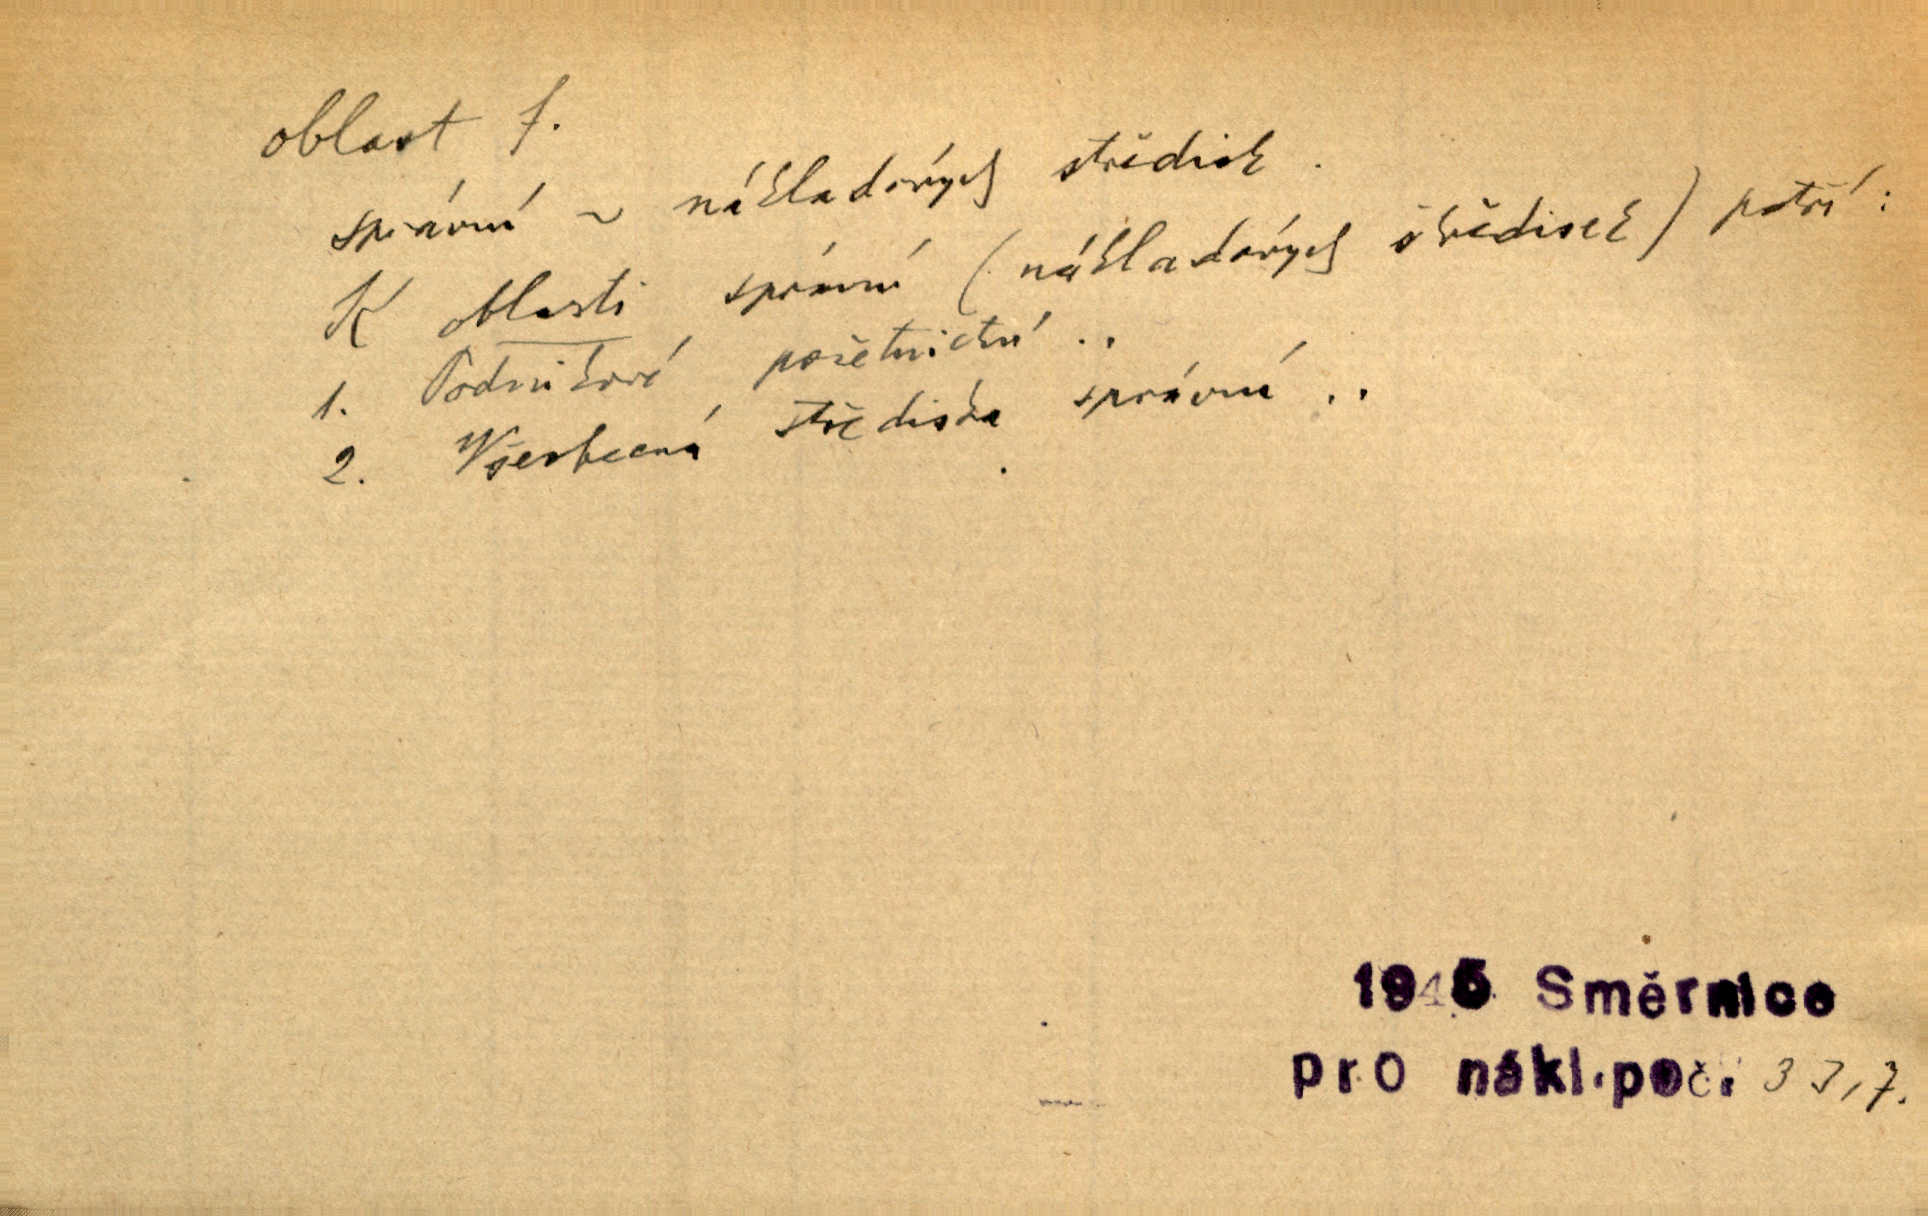 oblast f.
správní ~ nákladových středisk.
K oblasti správní (nákladových středisek) patří:
1. Podnikové početnictví ..
2. Všeobecná střediska správní ..
1945 Směrnice
pro nákl.poč. 33,7.